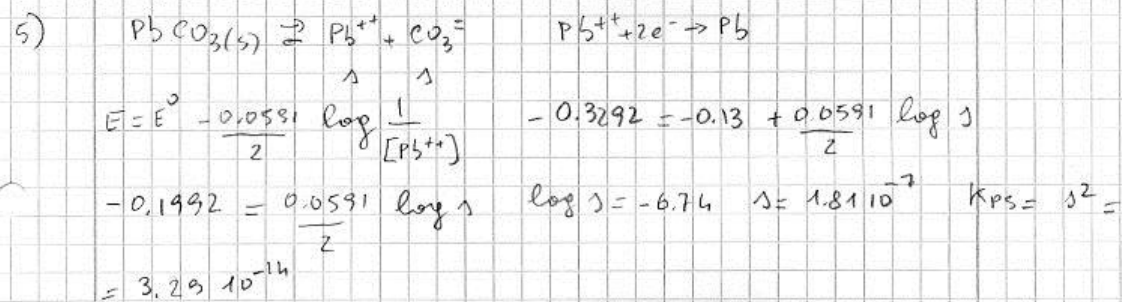 5) PbCO₃(s) ⇄ Pb⁺⁺ + CO₃⁼ Pb⁺⁺+2e⁻ → Pb
s s
E = E⁰ - 0.0591/2 log 1/[Pb⁺⁺] - 0.3292 = -0.13 + 0.0591/2 log s
-0.1992 = 0.0591/2 log s log s = -6.74 s = 1.81 10⁻⁷ Kps = s² =
= 3.29 10⁻¹⁴